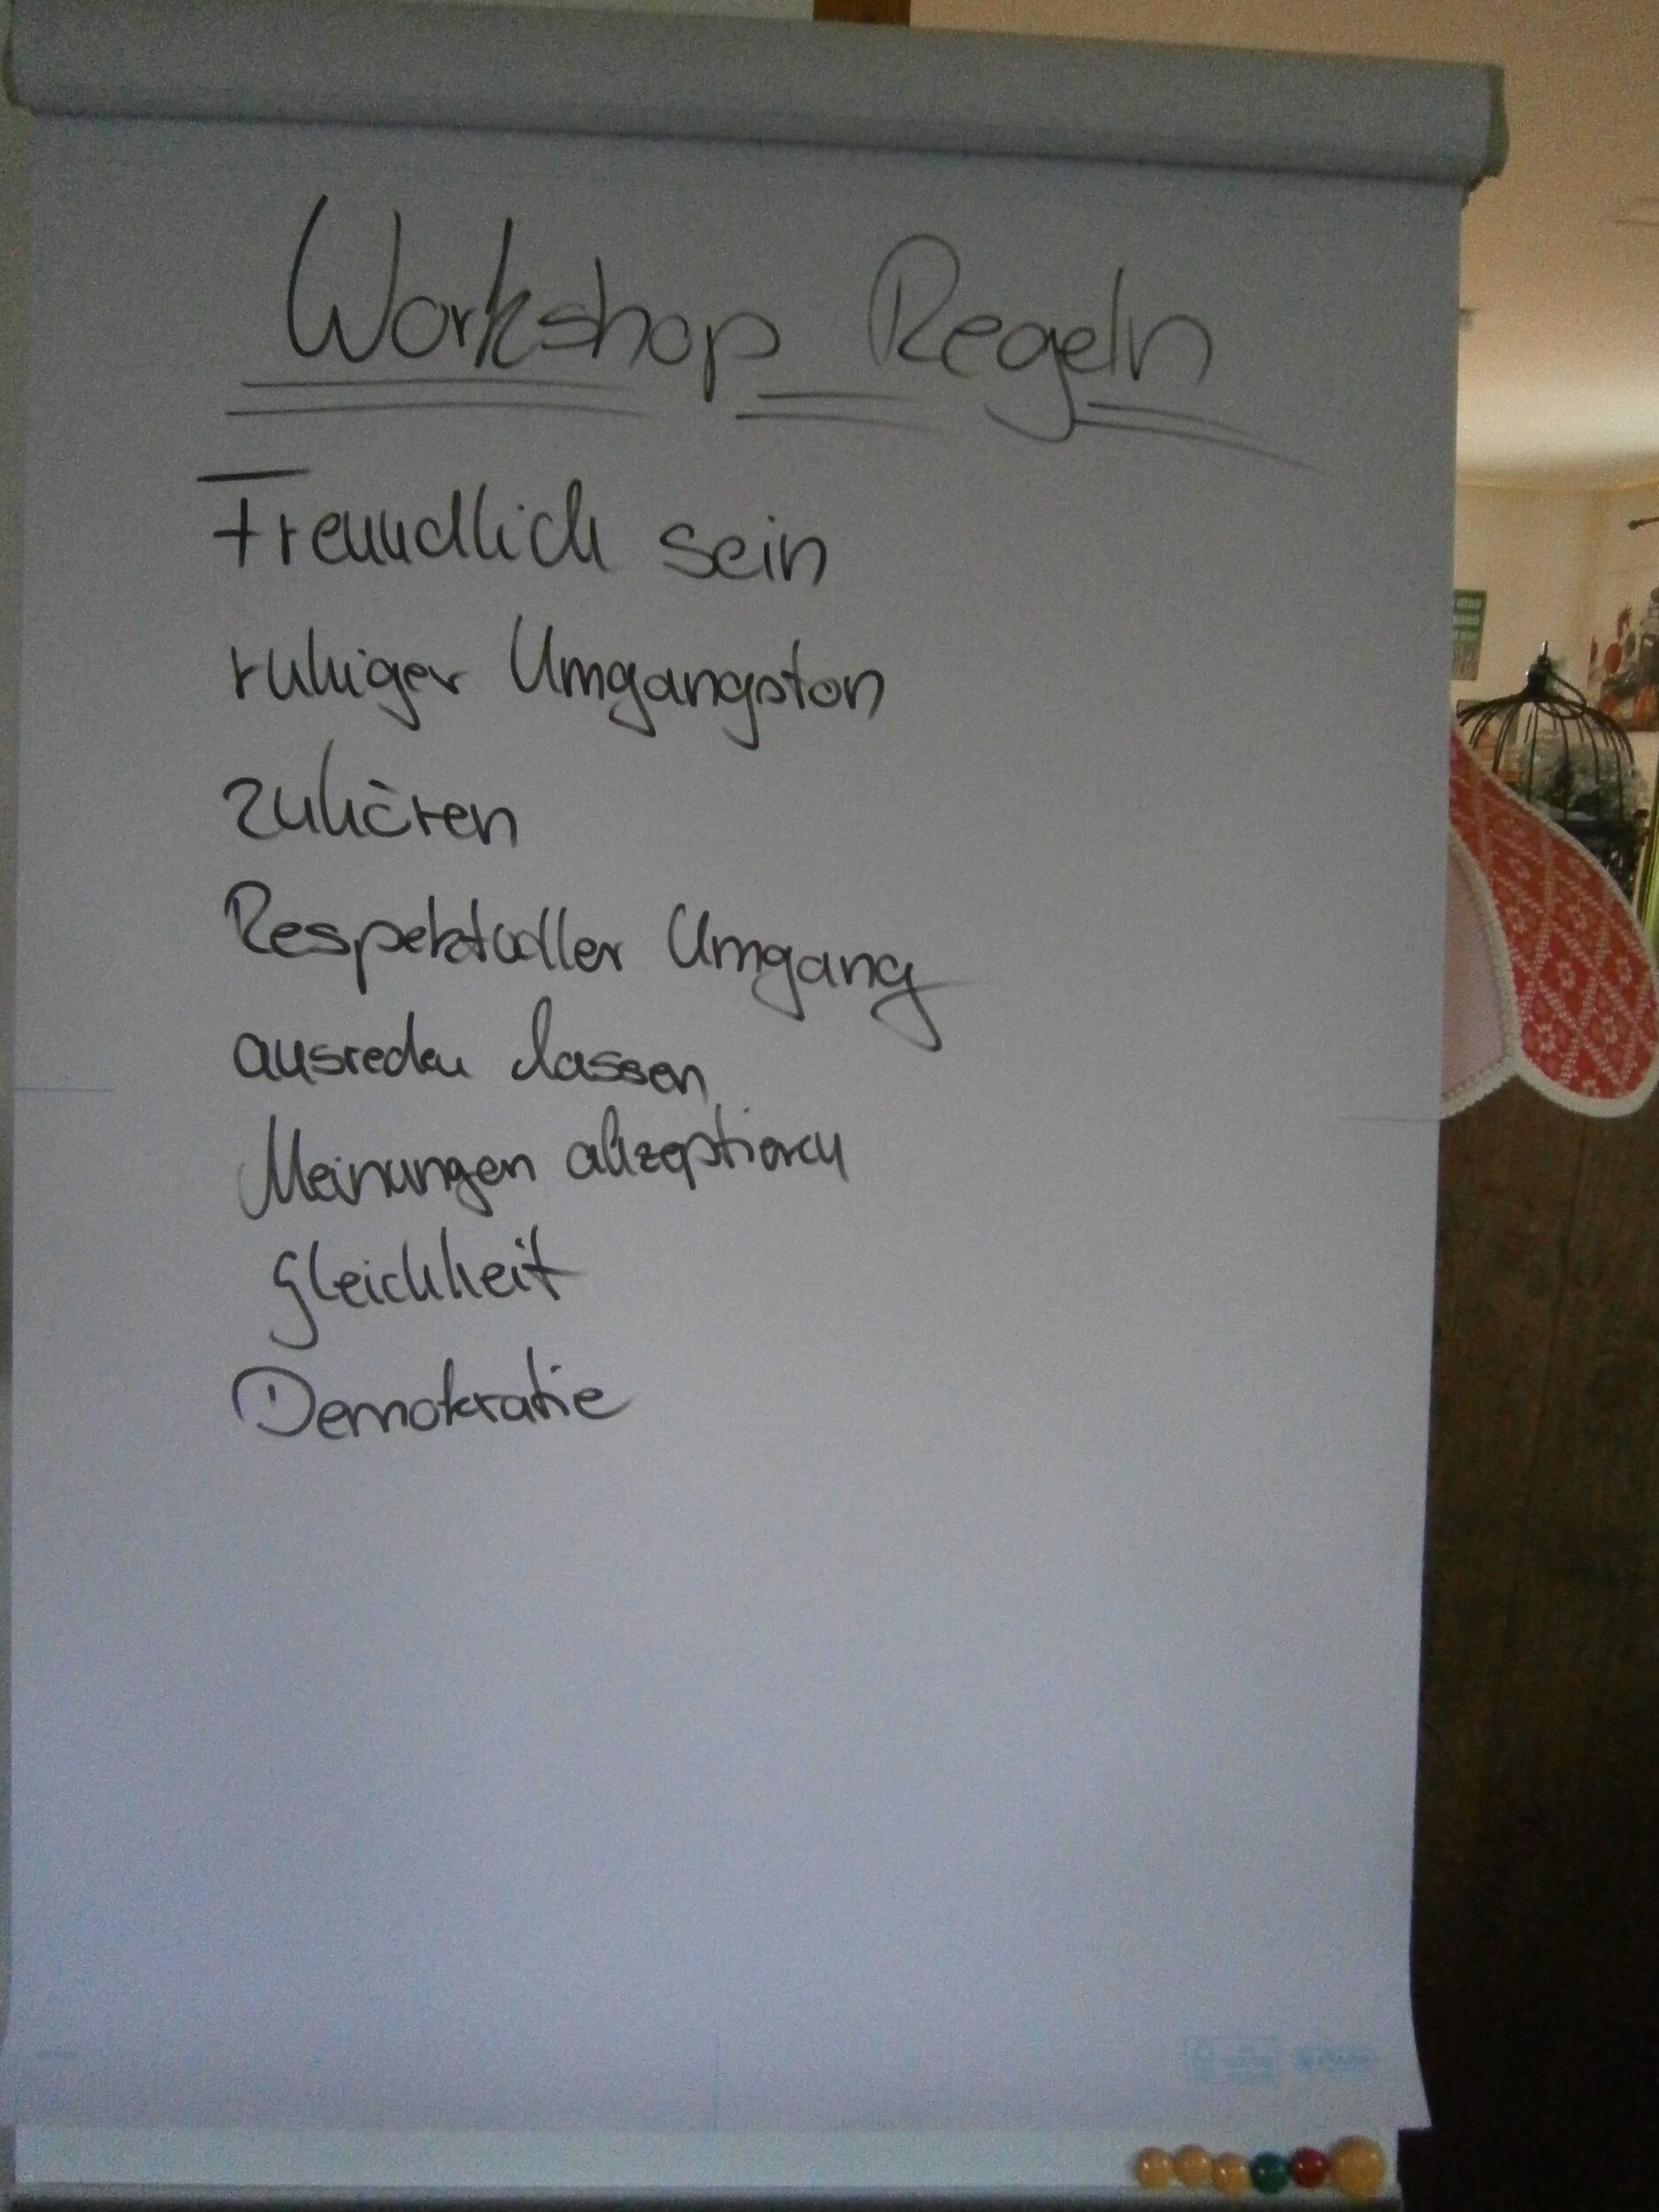 Workshop Regeln
Freundlich sein
ruhiger Umgangston
zuhören
Respektvoller Umgang
ausreden lassen
Meinungen akzeptieren
Gleichheit
Demokratie